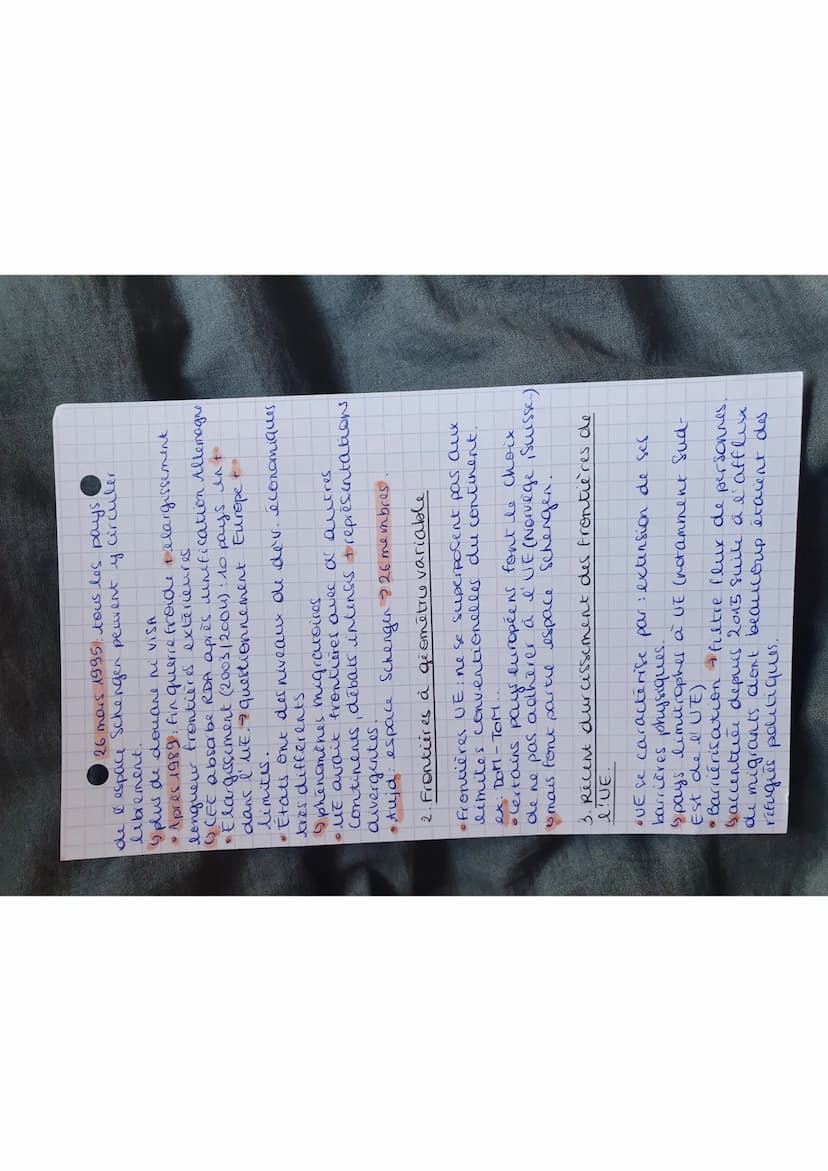 • 26 mars 1995 : tous les pays
de l'espace Schengen peuvent y circuler
librement.
↳ plus de douane ni VISA
• Après 1989 : fin guerre froide + élargissement
longueur frontières extérieures
↳ CEE absorbe RDA après unification Allemagne
• Élargissement (2003/2004) : 10 pays en +
dans l'UE. → questionnement Europe +
limites.
• États ont des niveaux de dév. économiques
très différents
↳ phénomènes migratoires
• UE avait frontières avec d'autres
continents, débats intenses + représentations
divergentes.
• Aujd : espace Schengen → 26 membres.
2. Frontières à géométrie variable
• Frontières UE : ne se superposent pas aux
limites conventionnelles du continent.
ex : DOM-TOM.
• Certains pays européens font le choix
de ne pas adhérer à l'UE (Norvège, Suisse.)
↳ mais font partie espace Schengen.
3. Récent durcissement des frontières de
l'UE.
• UE se caractérise par : extension de ses
barrières physiques.
↳ pays limitrophes à UE (notamment Sud-
Est de l'UE)
• Barriérisation → filtre flux de personnes.
↳ accentuée depuis 2015 suite à l'afflux
de migrants dont beaucoup étaient des
réfugiés politiques.